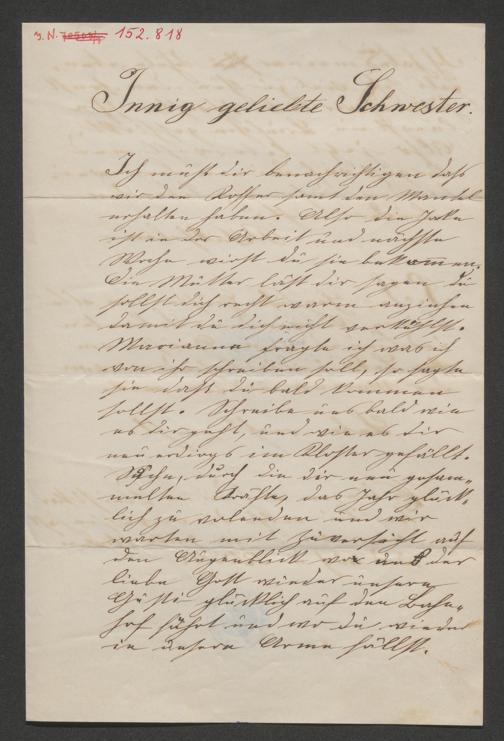 J. N. 152.818
Innig geliebte Schwester.
Ich muß dir benachrichtigen daß
wir den Koffer samt den Mantel
erhalten haben. Also die Jake
ist in der Arbeit und nächste
Woche wirst du sie bekommen.
Die Mutter läst dir sagen du
sollst dich recht warm anziehen
damit du dich nicht verkühlst.
Marianna fragte ich was ich
von ihr schreiben soll, so sagte
sie daß du bald kommen
sollst. Schreibe uns bald wie
es dir geht, und wie es dir
neuerdings im Kloster gefällt.
Suche, durch die dir neu gesam-
melten Kräfte, das Jahr glück-
lich zu volenden und wir
warten mit Zuversicht auf
den Augenblick wo uns der
liebe Gott wieder unsere
Gusti glücklich auf den Bahn-
hof führt und wo du wieder
in unsere Arme fällst.